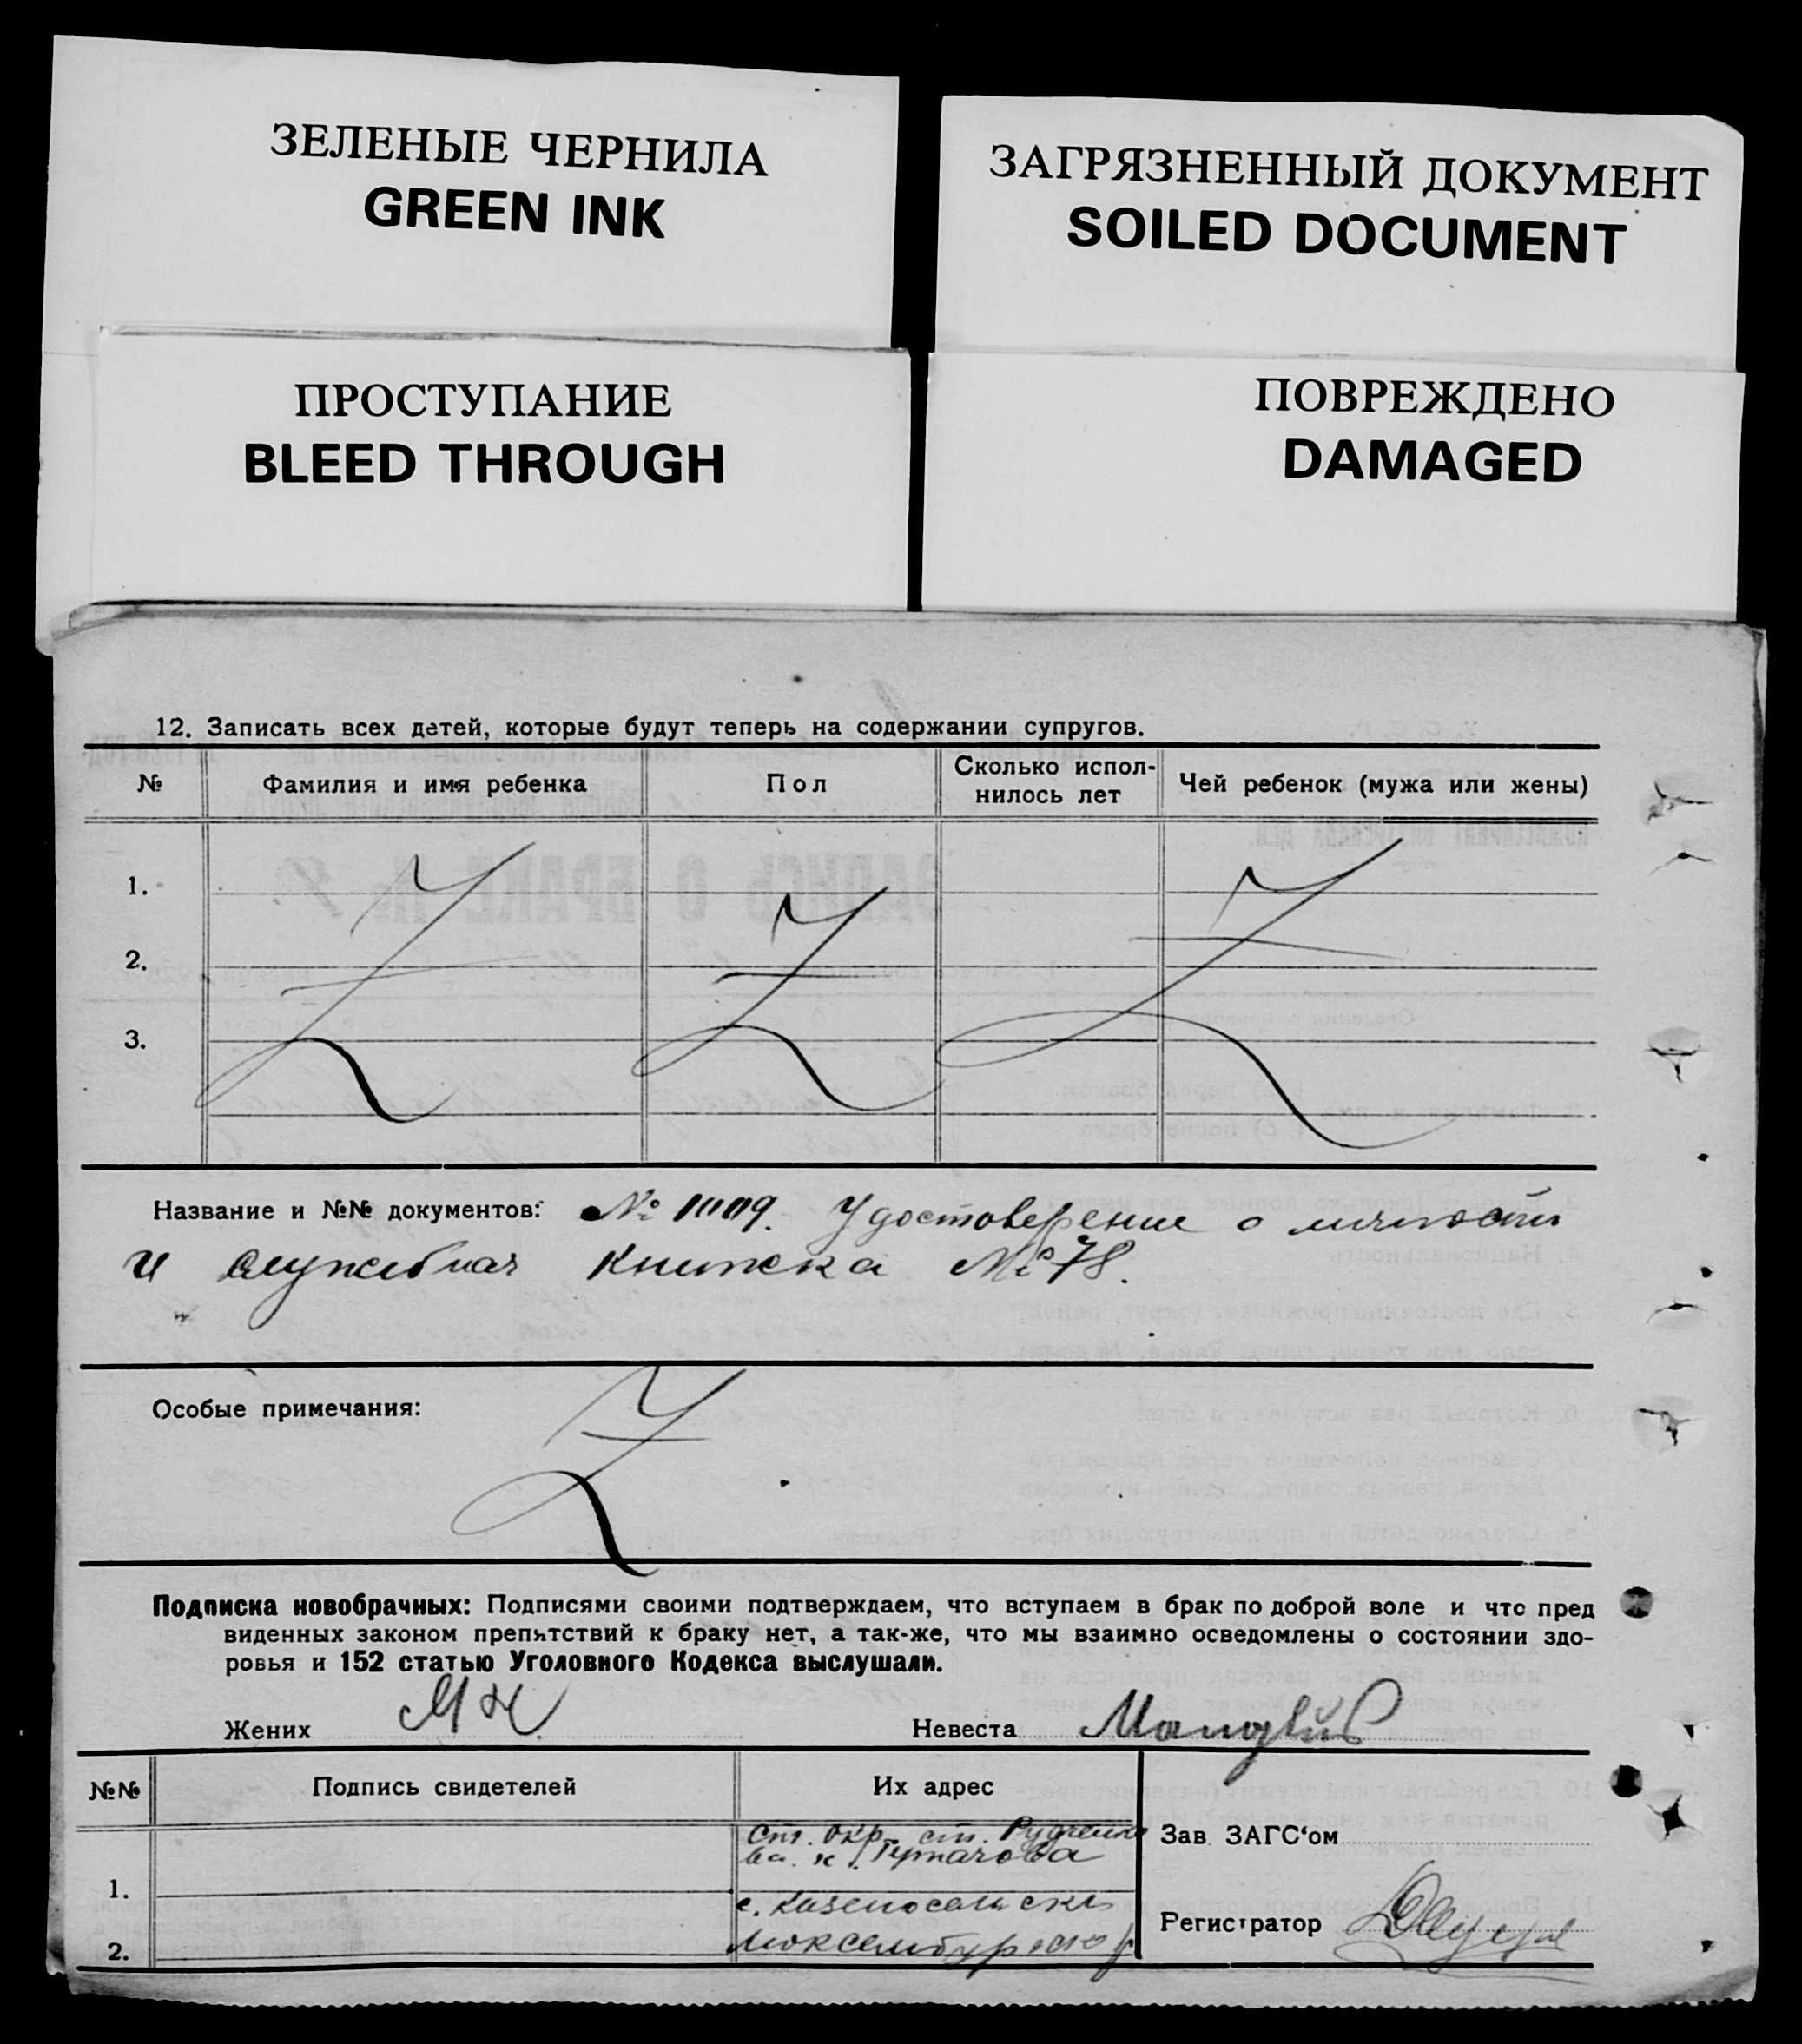 ЗЕЛЕНЫЕ ЧЕРНИЛА
GREEN INK
ЗАГРЯЗНЕННЫЙ ДОКУМЕНТ
SOILED DOCUMENT
ПРОСТУПАНИЕ
BLEED THROUGH
ПОВРЕЖДЕНО
DAMAGED
12. Записать всех детей, которые будут теперь на содержании супругов.
№ Фамилия и имя ребенка Пол Сколько испол-нилось лет Чей ребенок (мужа или жены)
1.
2.
3.
Название и №№ документов: № 1009. Удостоверение о личности
и служебная книжка № 78.
Особые примечания:
Подписка новобрачных: Подписями своими подтверждаем, что вступаем в брак по доброй воле и что пред
виденных законом препятствий к браку нет, а так-же, что мы взаимно осведомлены о состоянии здо-
ровья и 152 статью Уголовного Кодекса выслушали.
Жених Невеста
№№ Подпись свидетелей Их адрес
Ст. окр. ст.
Зав. ЗАГС'ом
1.
с.
Регистратор
2.